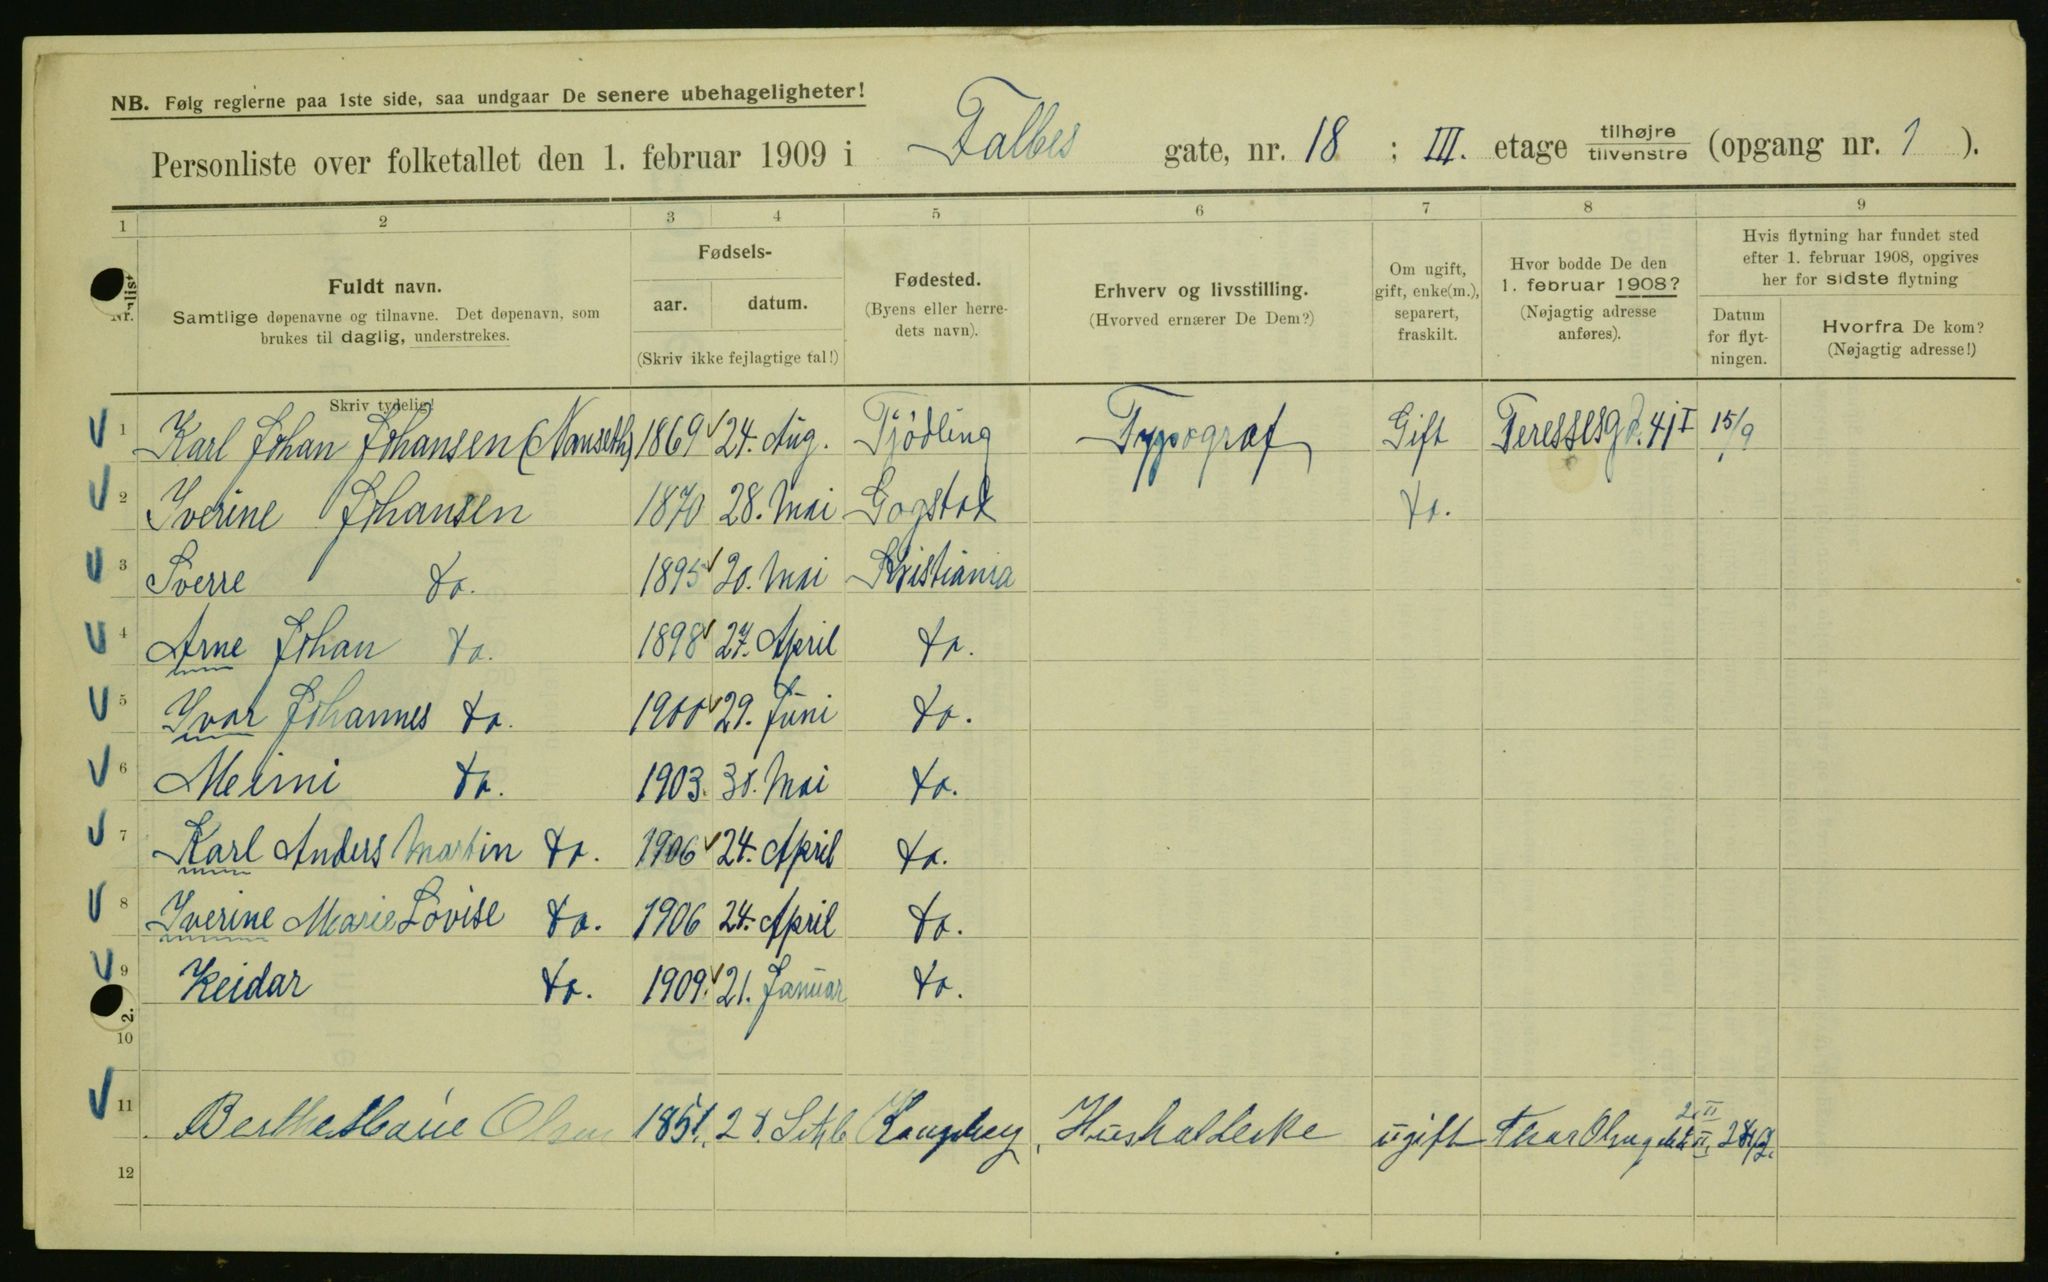 NB. Følg reglerne paa 1ste side, saa undgaar De senere ubehageligheter!
Personliste over folketallet den 1. februar 1909 i Falbes gate, nr. 18 ; III. etage tilhøjre / tilvenstre (opgang nr. 1 ).
1 2 3 4 5 6 7 8 9
Nr.
Fuldt navn.
Samtlige døpenavne og tilnavne. Det døpenavn, som
brukes til daglig, understrekes.
Skriv tydelig!
Fødsels-
aar. datum.
(Skriv ikke fejlagtige tal!)
Fødested.
(Byens eller herre-
dets navn).
Erhverv og livsstilling.
(Hvorved ernærer De Dem?)
Om ugift,
gift, enke(m.),
separert,
fraskilt.
Hvor bodde De den
1. februar 1908?
(Nøjagtig adresse
anføres).
Hvis flytning har fundet sted
efter 1. februar 1908, opgives
her for sidste flytning
Datum
for flyt-
ningen.
Hvorfra De kom?
(Nøjagtig adresse!)
1 Karl Johan Johansen (Nanseth) 1869 24. Aug. Tjödling Typograf Gift Teressesgd. 41 I 15/9
2 Yverine Johansen 1870 28. Mai Gogstad do.
3 Sverre do. 1895 20. Mai Kristiania
4 Arne Johan do. 1898 27. April do.
5 Yvar Johannes do. 1900 29. Juni do.
6 Meimi do. 1903. 30. Mai do.
7 Karl Anders Martin do. 1906 24. April do.
8 Yverine Marie Lovise do. 1906 24. April do.
9 Reidar do. 1909. 21. Januar do.
10
11 Berthe Marie Olsen 1851. 28. Septb Kongsberg Husholderske ugift Thor Olsug
12